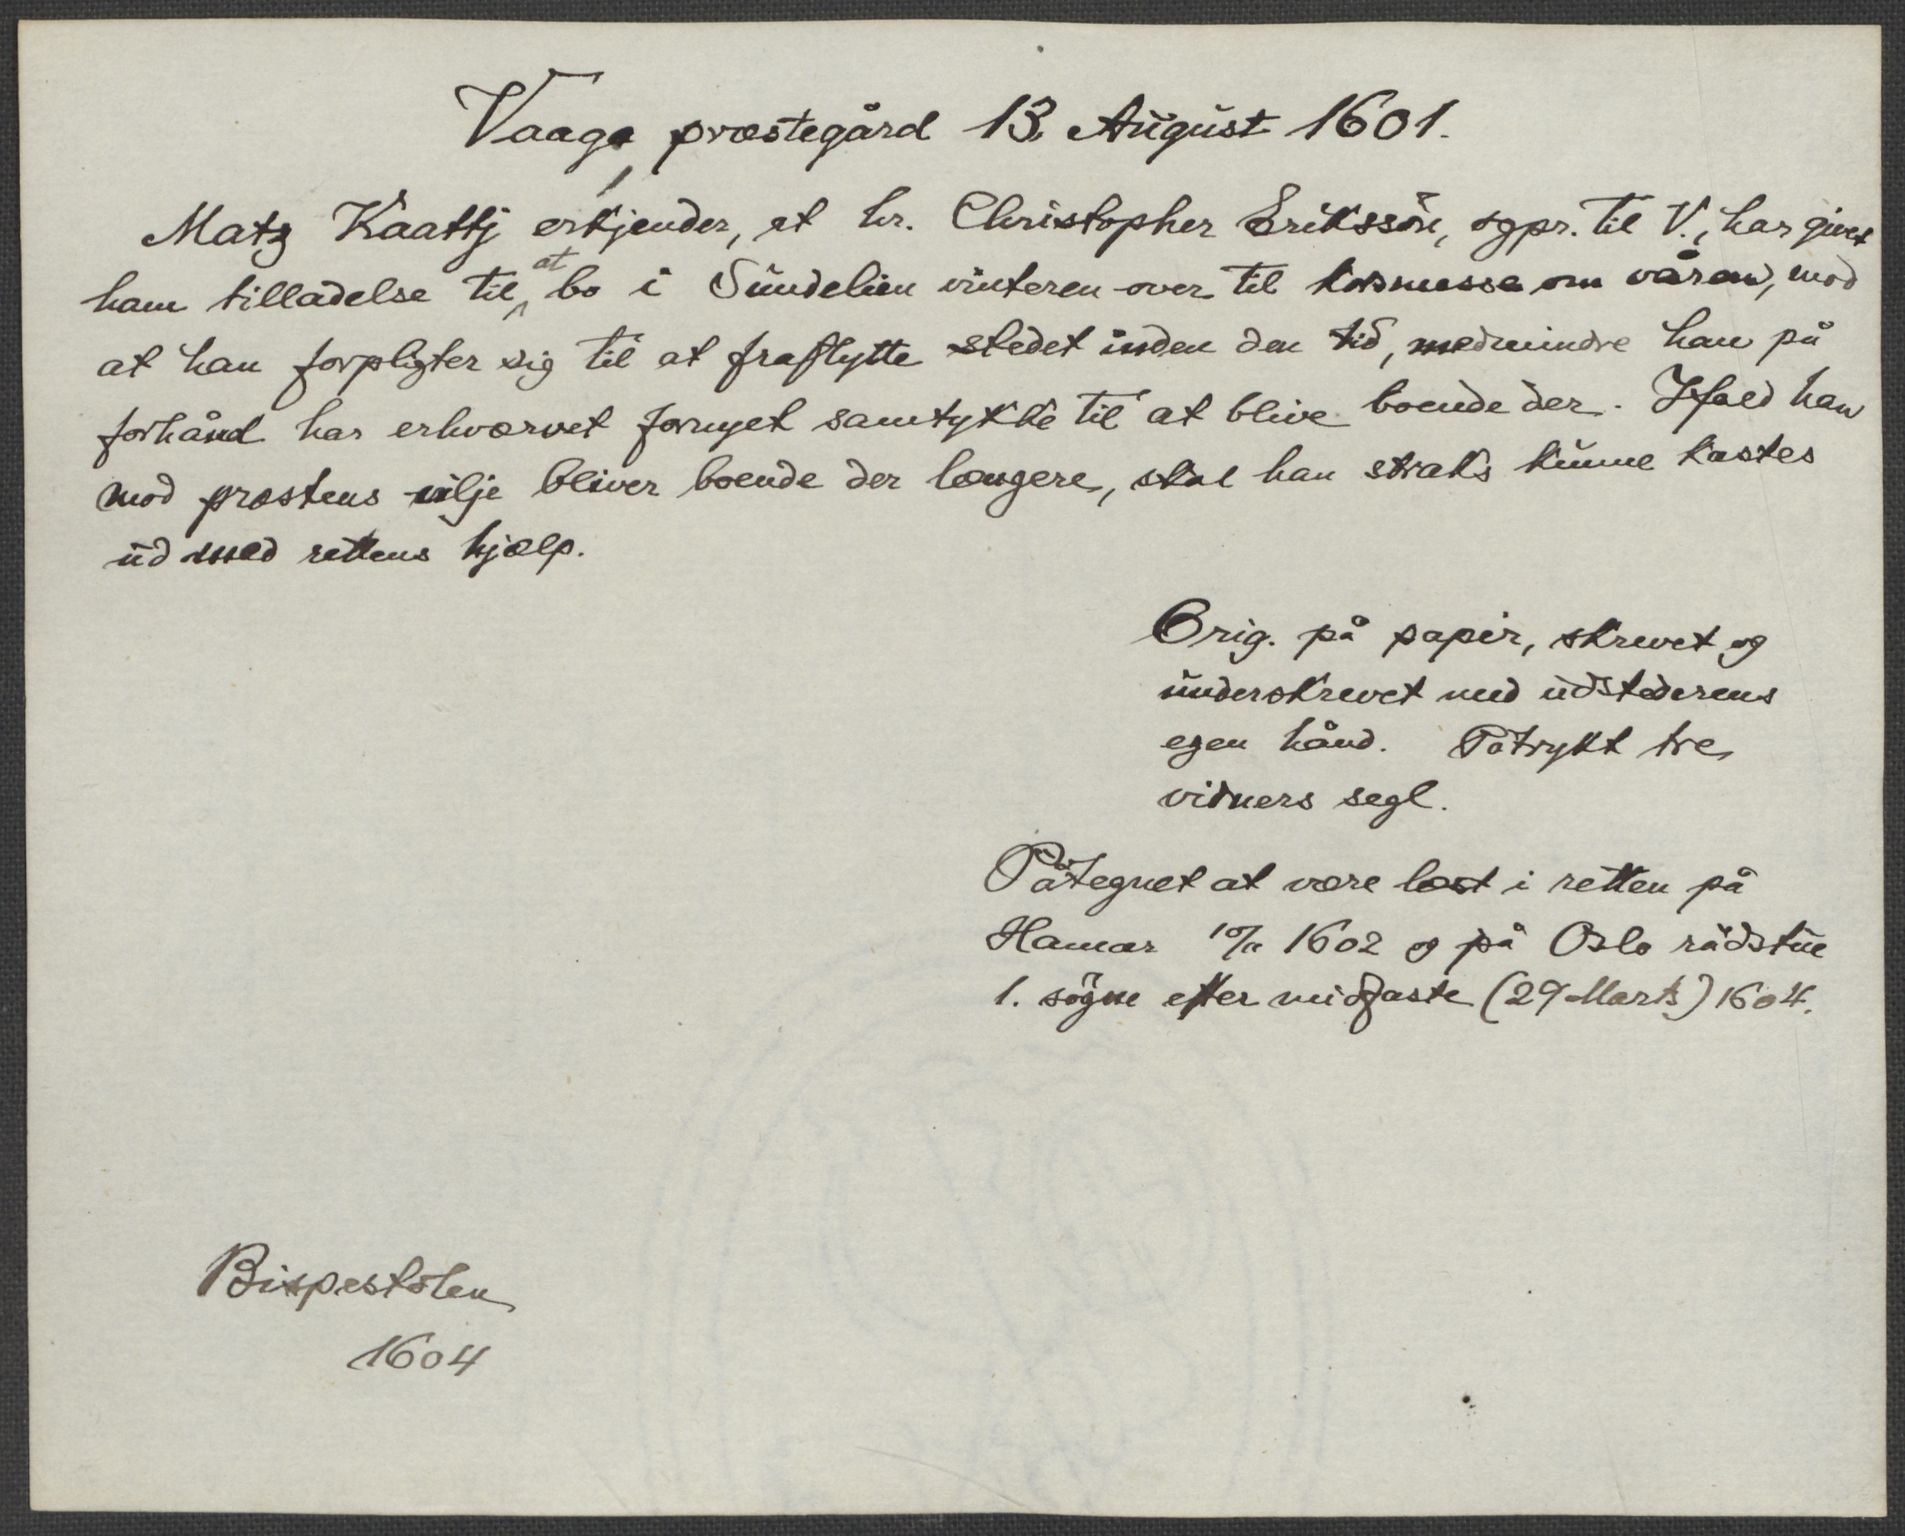 Vaage præstegård 13. August 1601.
Matz Kaattj erkjender, at hr. Christopher Erikssön, sgpr. til V., har givet
ham tilladelse til at bo i Sundelien vinteren over til korsmesse om våren, mod
at han forpligter sig til at fraflytte stedet inden den tid, medmindre han på
forhånd har erhværvet fornyet samtykke til at blive boende der. Ifald han
mod præstens vilje bliver boende der længere, skal han straks kunne kastes
ud med rettens hjælp.
Orig. på papir, skrevet og
underskrevet med udstederens
egen hånd. Påtrykt tre
vidners segl.
Påtegnet at være læst i retten på
Hamar 10/11 1602 og på Oslo rådstue
1. søgne efter midfaste (29 Marts) 1604.
Bispestolen
1604